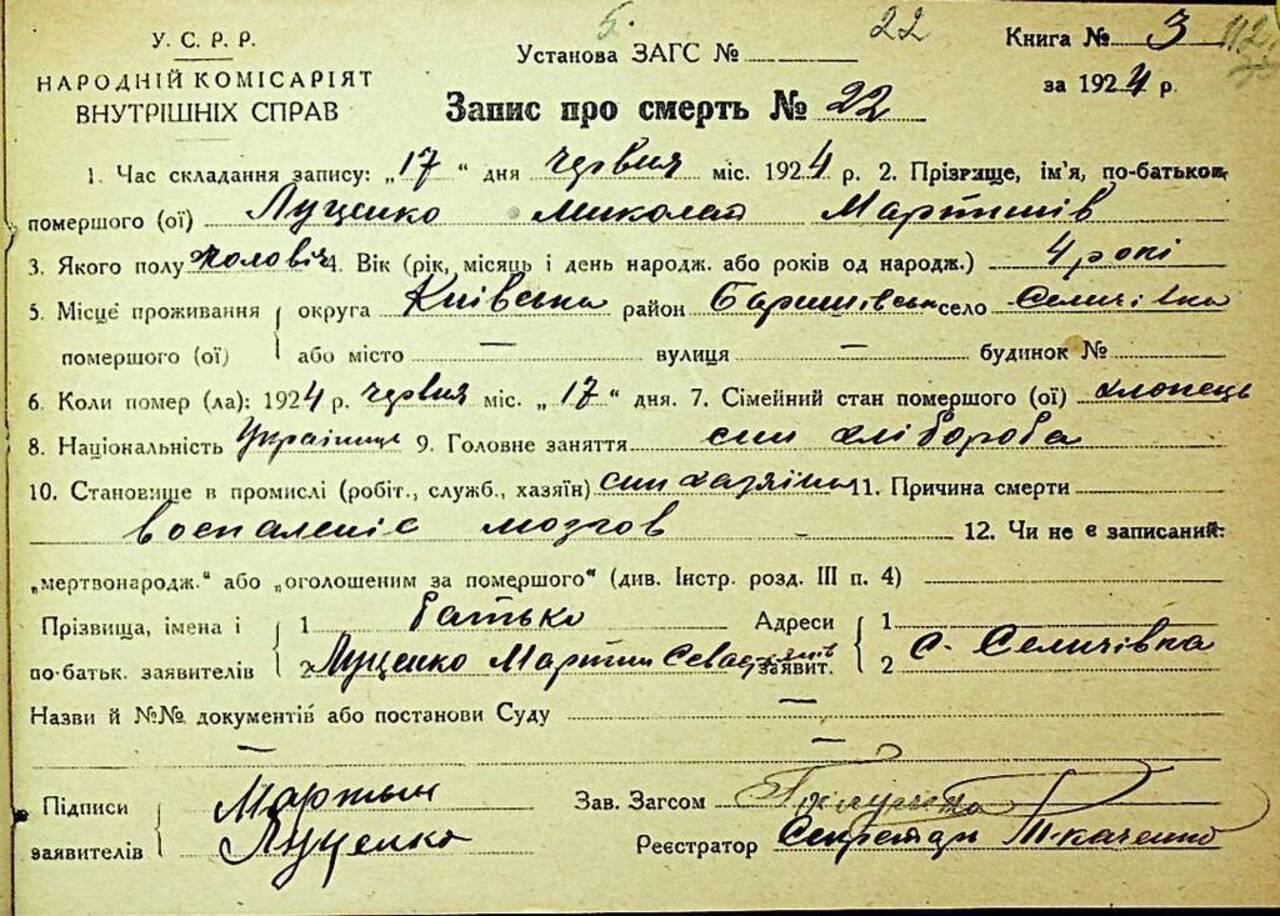 У. С. Р. Р.
НАРОДНІЙ КОМІСАРІЯТ
ВНУТРІШНІХ СПРАВ
5.
Установа ЗАГС № 22
Запис про смерть № 22
Книга № 3
112
за 1924 р.
1. Час складання запису: „17“ дня червня міс. 1924 р. 2. Прізвище, ім'я, по-батькові
помершого (ої) Луценко Миколай Мартинів
3. Якого полу чоловіч 4. Вік (рік, місяць і день народж. або років од народж.) 4 рокі
5. Місце проживання округа Київська район Баришівськ село Селичівка
помершого (ої) або місто — вулиця — будинок №
6. Коли помер (ла): 1924 р. червня міс. „17“ дня. 7. Сімейний стан помершого (ої) хлопець
8. Національність Українець 9. Головне заняття син хлібороба
10. Становище в промислі (робіт., служб., хазяїн) син хазяїна 11. Причина смерти
воспаленіє мозгов 12. Чи не є записаний:
„мертвонародж.“ або „оголошеним за помершого“ (див. Інстр. розд. III п. 4)
Прізвища, імена і 1 батько Адреси 1
по-батьк. заявителів 2 Луценко Мартин заявит. 2 С. Селичівка
Назви й №№ документів або постанови Суду —
— —
Підписи Мартын Зав. Загсом
заявителів Луценко Реєстратор Секретарь Ткаченко